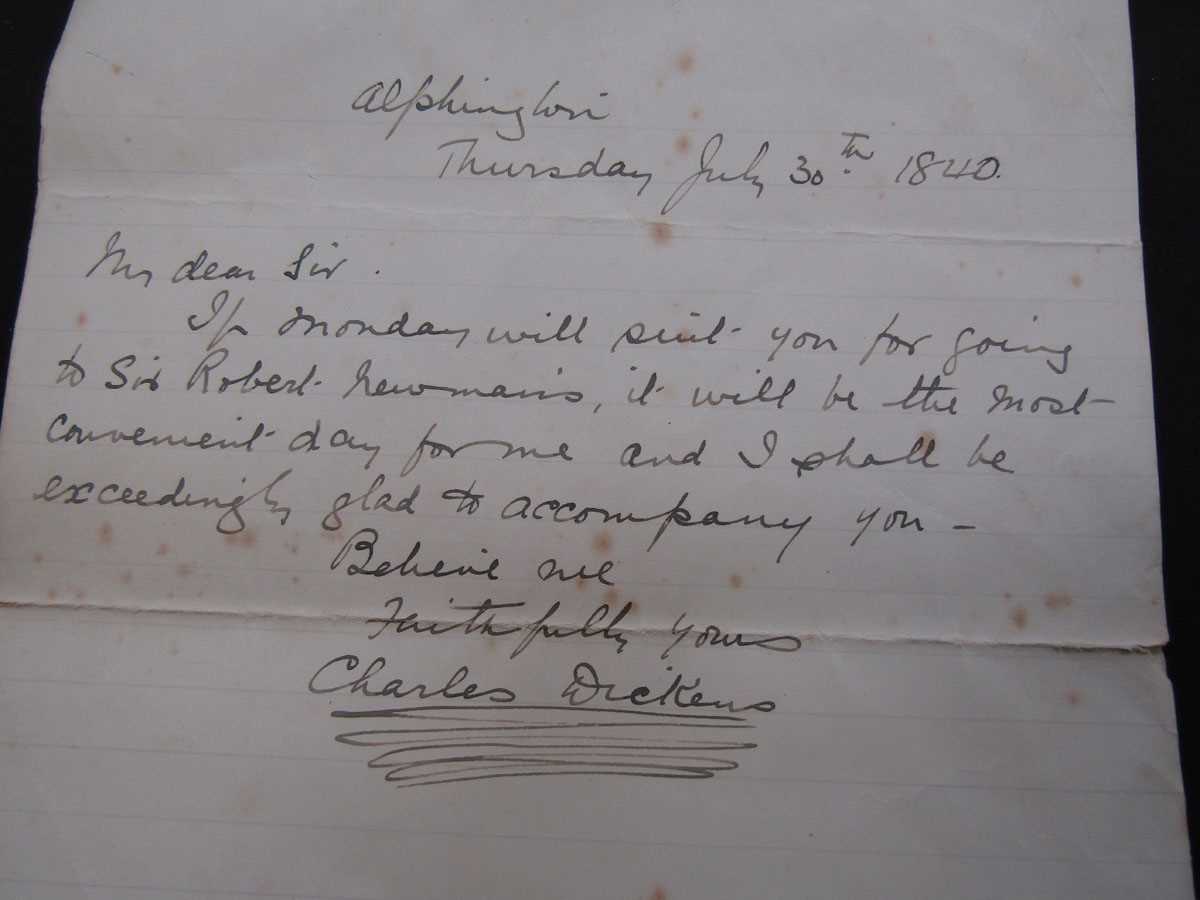 Alphington
Thursday July 30th. 1840.
My dear Sir.
If Monday will suit you for going
to Sir Robert Newman's, it will be the most
convenient day for me and I shall be
exceedingly glad to accompany you –
Believe me
Faithfully yours
Charles Dickens